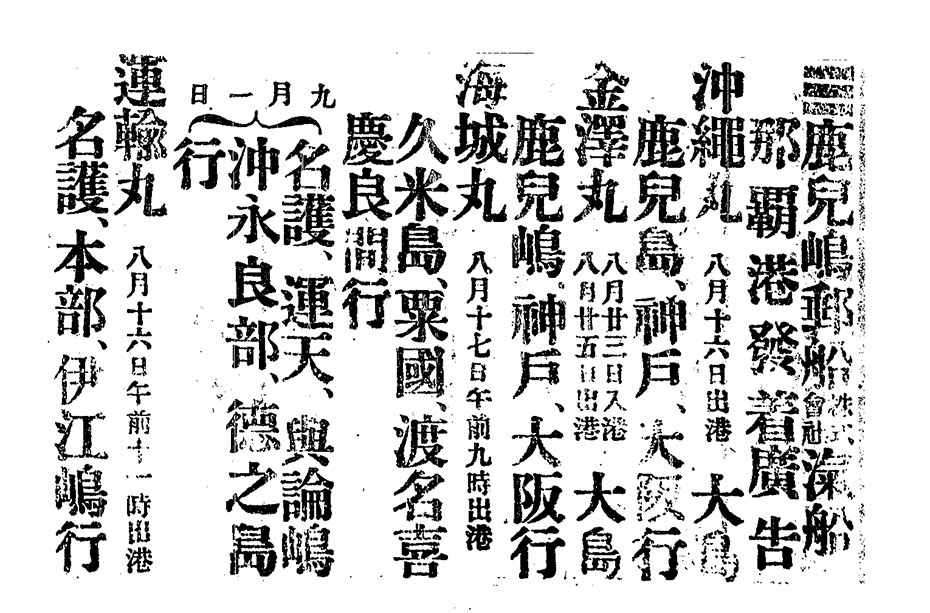 鹿兒嶋郵船株式會社滊船
那覇港發着廣告
沖繩丸 八月十六日出港 大島
鹿兒島、神戶、大阪行
金澤丸 八月廿三日入港 八月廿五日出港 大島
鹿兒嶋、神戶、大阪行
海城丸 八月十七日午前九時出港
久米島、粟國、渡名喜
慶良間行
九月一日
名護、運天、與論嶋
沖永良部、德之島
行
運輸丸 八月十六日午前十一時出港
名護、本部、伊江嶋行